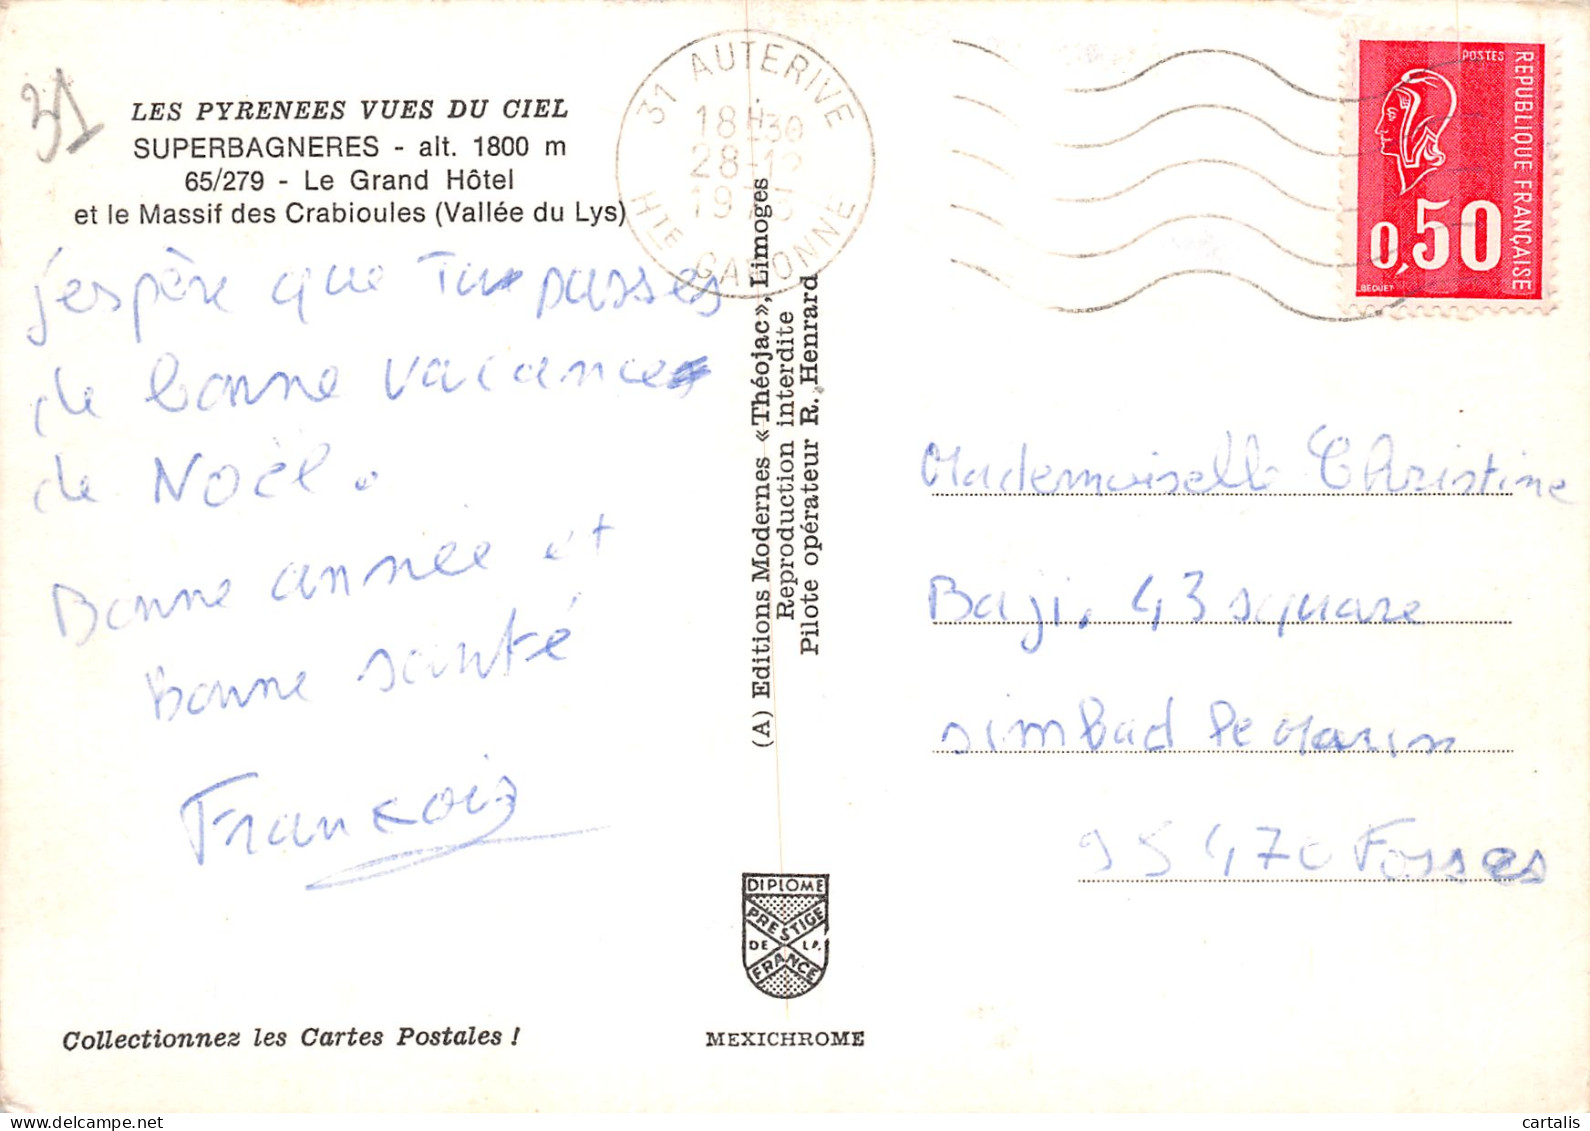 31
LES PYRENEES VUES DU CIEL
SUPERBAGNERES - alt. 1800 m
65/279 - Le Grand Hôtel
et le Massif des Crabioules (Vallée du Lys)
j'espère que Tu passes
de bonne vacances
de Noël.
Bonne année et
Bonne santé
François
Collectionnez les Cartes Postales !
31 AUTERIVE
18H30
28-12
19
HTE GARONNE
(A) Editions Modernes «Théojac», Limoges
Reproduction interdite
Pilote opérateur R. Henrard
DIPLOME
PRESTIGE
DE LA
FRANCE
MEXICHROME
POSTES
REPUBLIQUE FRANÇAISE
0,50
BEQUET
Mademoiselle Christine
Baji. 43 square
simbad le Marin
95470 Fosses
cartalis